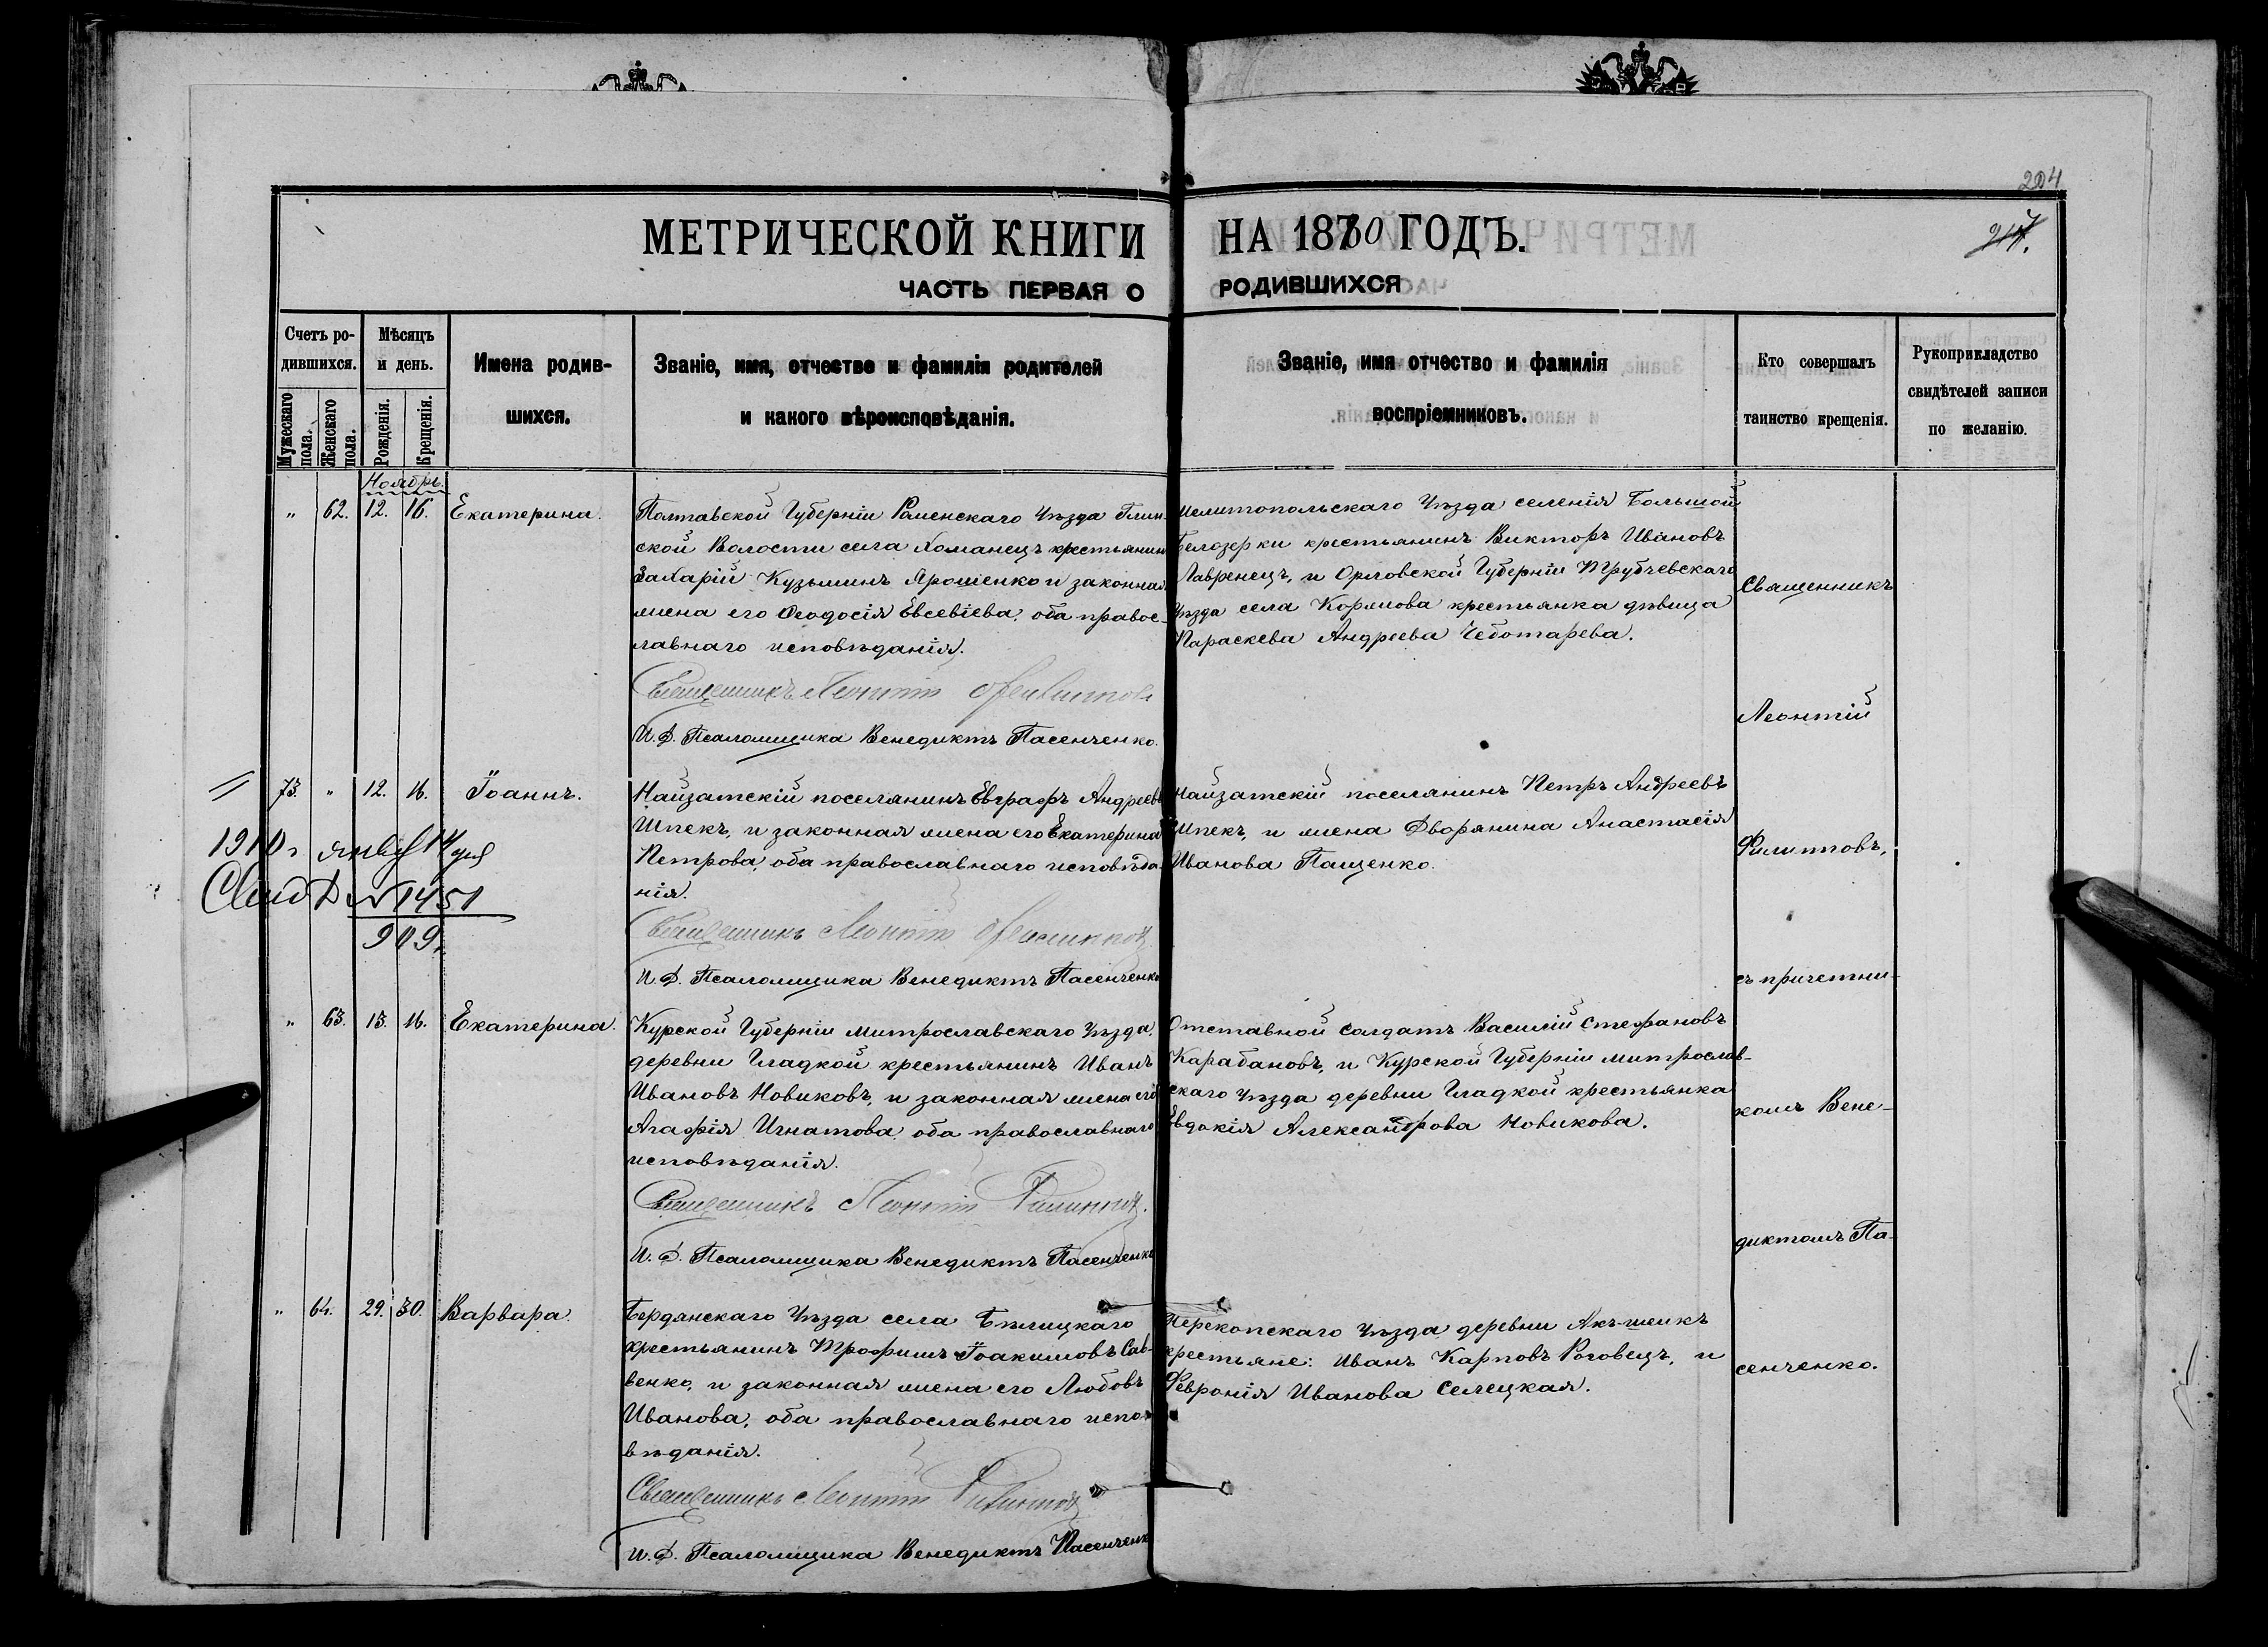 204
217.
МЕТРИЧЕСКОЙ КНИГИ НА 1880 ГОДЪ.
ЧАСТЬ ПЕРВАЯ О РОДИВШИХСЯ
Счетъ ро-
дившихся.
Мужескаго пола.
Женскаго пола.
Мѣсяцъ
и день.
Рожденія.
Крещенія.
Имена родив-
шихся.
Званіе, имя, отчество и фамилія родителей
и какого вѣроисповѣданія.
Званіе, имя отчество и фамилія
воспріемниковъ.
Кто совершалъ
таинство крещенія.
Рукоприкладство
свидѣтелей записи
по желанію.
Ноябрь.
" 62. 12. 16. Екатерина.
Полтавской Губерніи Роменскаго Уѣзда Глин-
ской Волости села Хоманецъ крестьянинъ
Захарій Кузьминъ Ярошенко и законная
жена его Ѳеодосія Евсевіева, оба правос-
лавнаго исповѣданія.
Священникъ Леонтій Филипповъ
И. Д. Псаломщика Венедиктъ Пасенченко.
Мелитопольскаго Уѣзда селенія Большой
Белозерки крестьянинъ Викторъ Ивановъ
Лавренецъ, и Орловской Губерніи Трубчевскаго
Уѣзда села Кормова крестьянка дѣвица
Параскева Андреева Чеботарева.
73. " 12. 16. Іоаннъ.
1910 г январ 14 дня
Свид № 1451
909.
Найзатскій поселянинъ Евграфъ Андреевъ
Шпекъ, и законная жена его Екатерина
Петрова, оба православнаго исповѣда-
нія.
Священникъ Леонтій Филипповъ
И. Д. Псаломщика Венедиктъ Пасенченко
Найзатскій поселянинъ Петръ Андреевъ
Шпекъ, и жена Дворянина Анастасія
Иванова Пащенко.
" 63. 15. 16. Екатерина.
Курской Губерніи Митрославскаго Уѣзда,
деревни Гладкой крестьянинъ Иванъ
Ивановъ Новиковъ, и законная жена его
Агафія Игнатова, оба православнаго
исповѣданія.
Священникъ Леонтій Филипповъ.
И. Д. Псаломщика Венедиктъ Пасенченко
Отставной солдатъ Василій Стефановъ
Карабановъ, и Курской Губерніи Митрослав-
скаго Уѣзда деревни Гладкой крестьянка
Евдокія Александрова Новикова.
" 64. 29. 30. Варвара.
Бердянскаго Уѣзда села Бѣлицкаго
крестьянинъ Трофимъ Іоакимовъ Сав-
венко, и законная жена его Любовь
Иванова, оба православнаго испо-
вѣданія.
Священникъ Леонтій Филипповъ
И. Д. Псаломщика Венедиктъ Пасенченк
Перекопскаго Уѣзда деревни Акъ-шеихъ
крестьяне: Иванъ Карповъ Роговецъ, и
Февронія Иванова Селецкая.
Священникъ
Леонтій
Филипповъ,
съ причетни-
комъ Вене-
диктомъ Па-
сенченко.